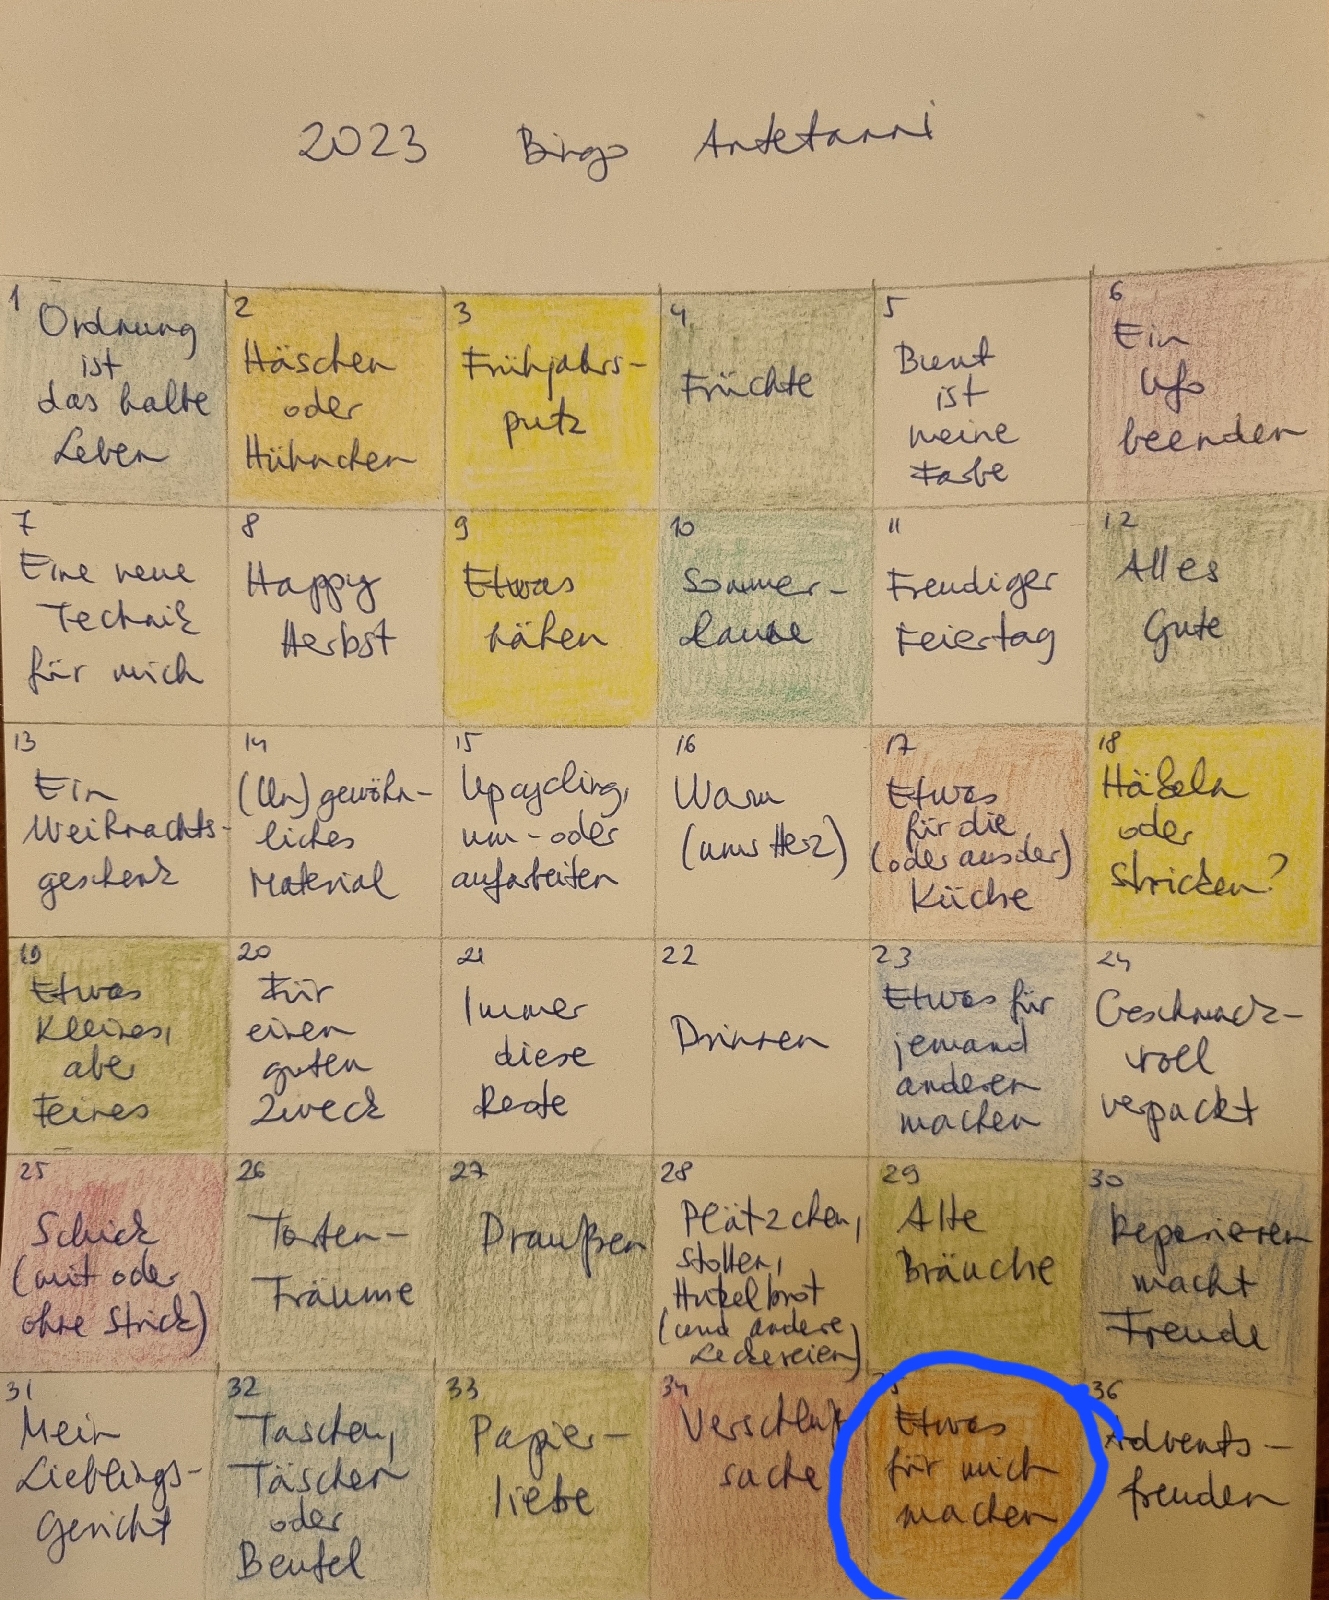 2023 Bingo Antetanni
1
Ordnung
ist
das halbe
Leben
2
Häschen
oder
Hühnchen
3
Frühjahrs-
putz
4
Früchte
5
Bunt
ist
meine
Farbe
6
Ein
Ufo
beenden
7
Eine neue
Technik
für mich
8
Happy
Herbst
9
Etwas
nähen
10
Sommer-
laune
11
Freudiger
Feiertag
12
Alles
Gute
13
Ein
Weihnachts-
geschenk
14
(Un)gewöhn-
liches
Material
15
Upcycling,
um- oder
aufarbeiten
16
Warm
(ums Herz)
17
Etwas
für die
(oder aus der)
Küche
18
Häkeln
oder
stricken?
19
Etwas
Kleines,
aber
Feines
20
Für
einen
guten
Zweck
21
Immer
diese
Reste
22
Drinnen
23
Etwas für
jemand
anderen
machen
24
Geschmack-
voll
verpackt
25
Schick
(mit oder
ohne Strick)
26
Torten-
Träume
27
Draußen
28
Plätzchen,
Stollen,
Hutzelbrot
(und andere
Leckereien)
29
Alte
Bräuche
30
Reparieren
macht
Freude
31
Mein
Lieblings-
gericht
32
Taschen,
Täschen
oder
Beutel
33
Papier-
liebe
34
Verschluß
sache
35
Etwas
für mich
machen
36
Advents-
freuden